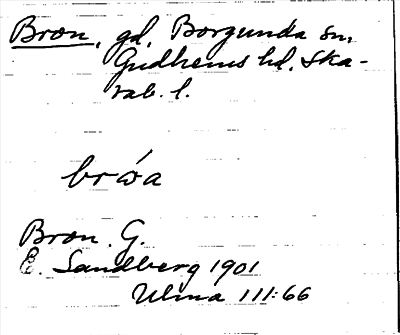 Bron, gd, Borgunda sn,
Gudhems hd. Ska-
rab. l.
brώa
Bron. G.
E. Sandberg 1901
Ulma 111:66